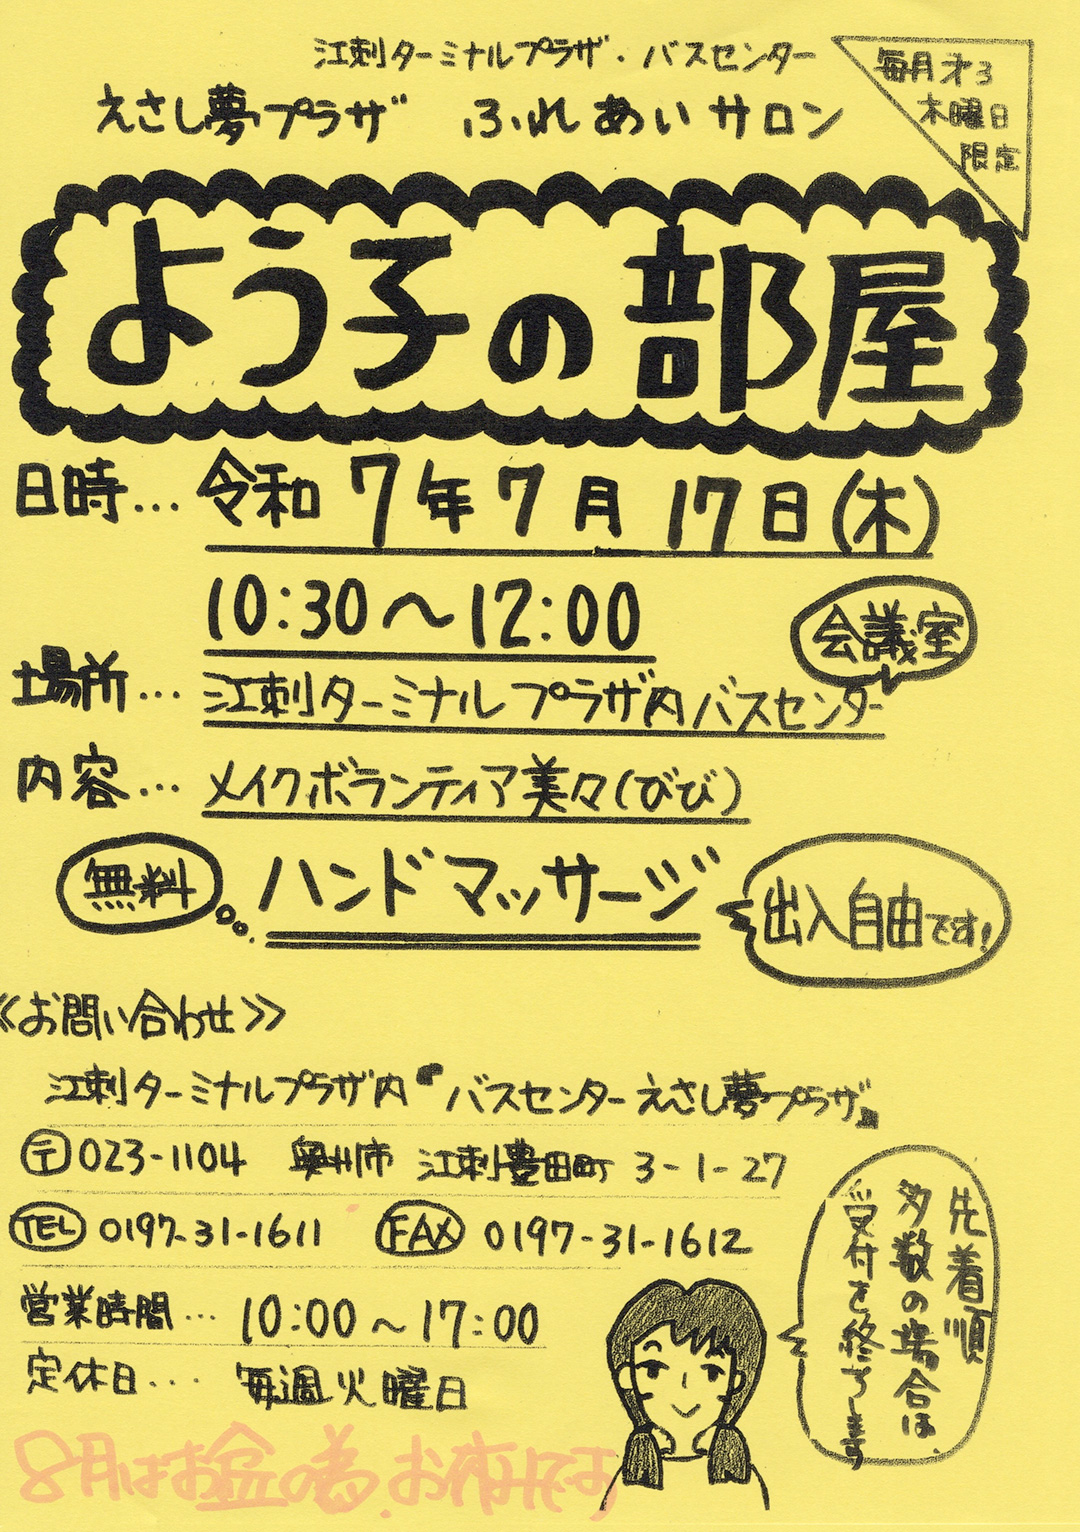 江刺ターミナルプラザ・バスセンター
えさし夢プラザ ふれあいサロン
毎月才3
木曜日
限定
ようこの部屋
日時… 令和7年7月17日(木)
10:30〜12:00
会議室
場所… 江刺ターミナルプラザ内バスセンター
内容… メイクボランティア美々(びび)
無料
ハンドマッサージ
出入自由です!
《お問い合わせ》
江刺ターミナルプラザ内『バスセンターえさし夢プラザ』
〒023-1104 奥州市 江刺豊田町 3-1-27
TEL 0197-31-1611 FAX 0197-31-1612
営業時間… 10:00〜17:00
定休日… 毎週火曜日
先着順
多数の場合は、
受付を終ります
8月はお盆の為、お休みです